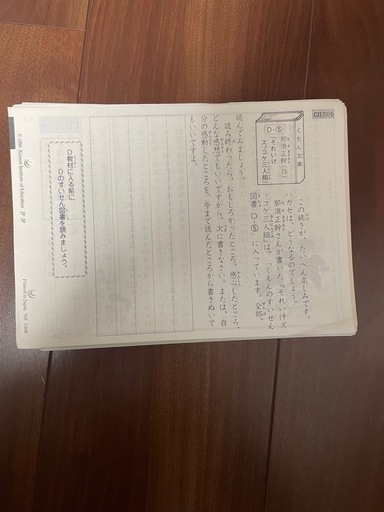 CⅡ200b
くもん文庫
D-⑤
那須正幹〔作〕
「それいけ
ズッコケ三人組」
この続きが、たいへん楽しみです。
ハカセは、どうなるのでしょう。
那須正幹さんが書いた『それいけズ
ッコケ三人組』は、「くもんのすいせん
図書 D-⑤」に入っています。全部、
読んでみましょう。
読み終わったら、おもしろかったところ、感心したところ、
どんな感想でもいいですから、次に書きなさい。または、自
分の感動したところを、今まで読んだところから書きぬいて
もいいですよ。
D教材に入る前に
Dのすいせん図書を読みましょう。
© 1996 Kumon Institute of Education JP JP
Printed in Japan